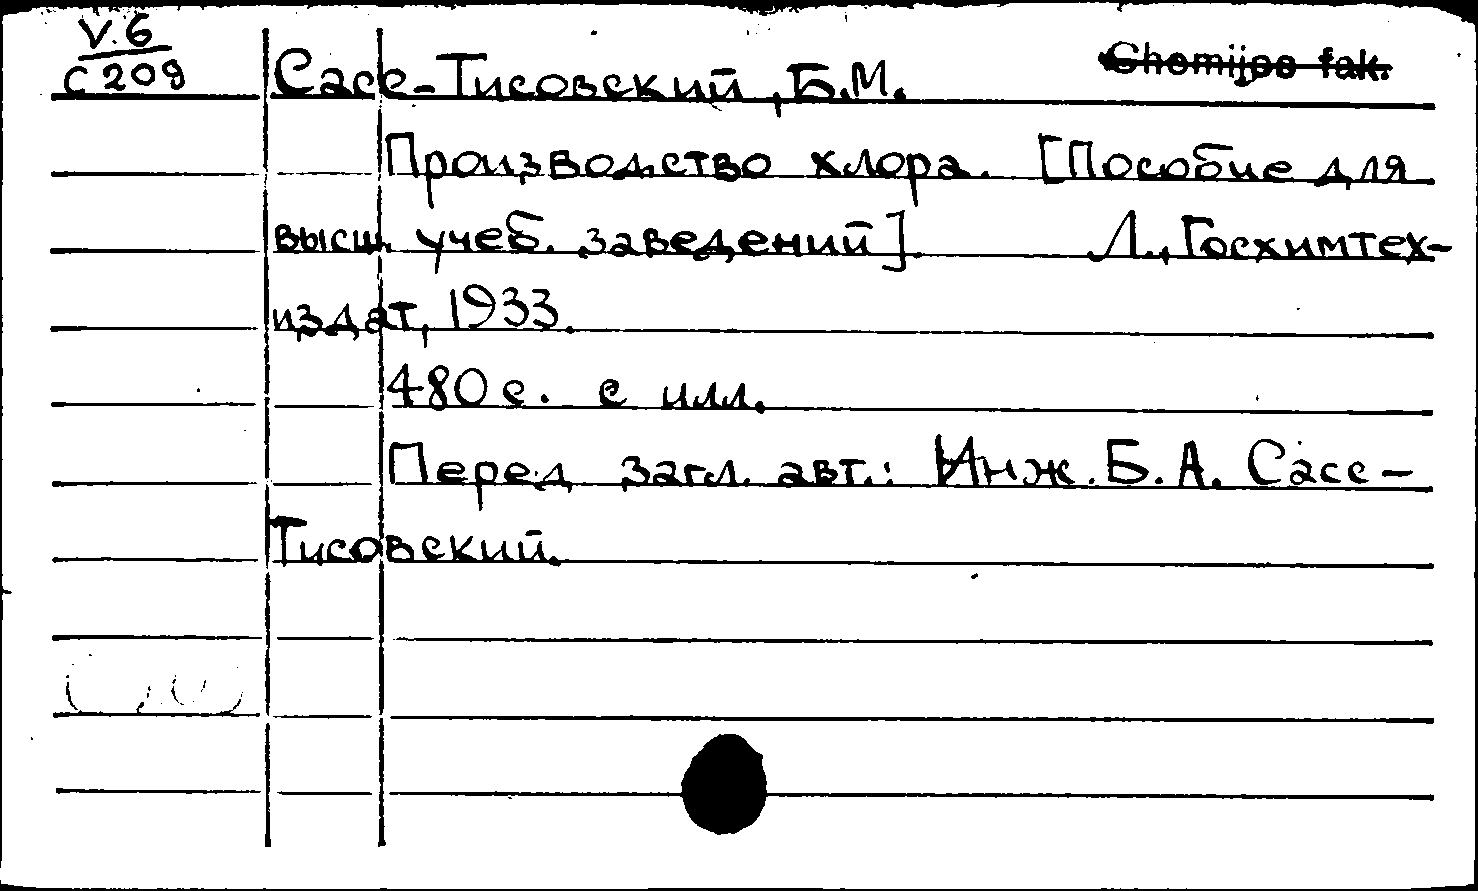 V.6
С 209
Сасс-Тисовский, Б.М.
Chemijos fak.
Производство хлора. [Пособие для
высш. учеб. заведений]. Л., Госхимтех-
издат, 1933.
480 с. с илл.
Перед загл. авт.: Инж. Б. А. Сасс-
Тисовский.